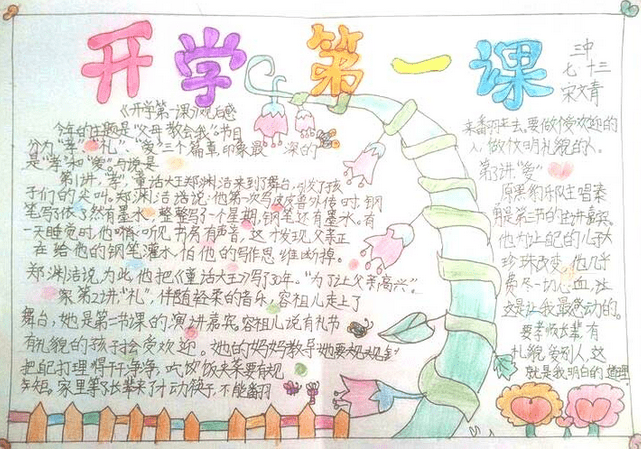 开学第一课
三中
七 十三
宋文青
《开学第一课》观后感
今年的主题是“父母教会我”节目
分为“孝”、“礼”、“爱”三个篇章,印象最深的
是“孝”和“爱”
第1讲,“孝”,童话大王郑渊洁来到了舞台,引发了孩
子们的尖叫。郑渊洁说:他第一次写皮皮鲁外传时,钢
笔写了依了然有墨水,整整写了一个星期,钢笔还有墨水。有
一天睡觉时他嘴听见书房有声音,这才发现父亲正
在给他的钢笔灌水,怕他的写作思维断掉。
郑渊洁说,为此,他把《童话大王》写了30年。“为了让父亲高兴”。
第2讲,“礼”,伴随轻柔的音乐,容祖儿走上了
舞台,她是第一书课的演讲嘉宾。容祖儿说有礼节
有礼貌的孩子才会受欢迎。她的妈妈教导她要规规
把自己打理得干干净净,吃饭夹菜要有规
矩,家里等长辈来了才动筷子,不能翻
来翻去,要做受欢迎的
人,做文明礼貌的人。
第3讲“爱”
原黑豹乐队主唱秦
勇是第三节的主讲嘉宾
他为让自己的儿子大
珍珠改变,他几乎
费尽一切心血,注
这是让我最感动的。
要孝敬长辈,有
礼貌,爱别人,这
就是我明白的道理